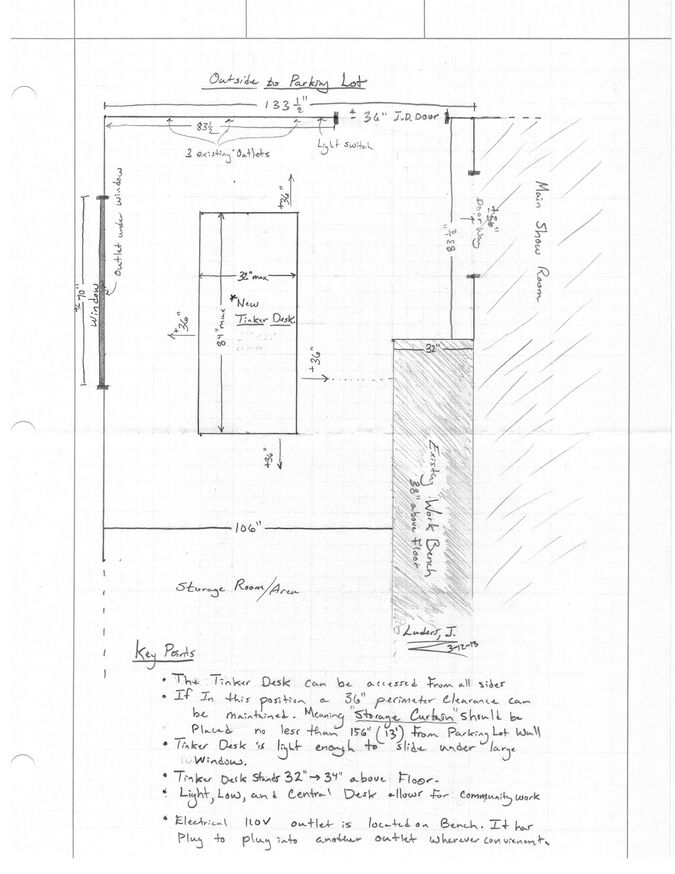 Outside to Parking Lot
133 1/2"
± 36" I.D. Door
83 1/2
3 existing outlets
Light Switch
outlet under window
Window
± 70"
±36"
Door Way
Main Show Room
+36"
32" max
84" max
*New
Tinker Desk.
+36"
+36"
+36"
32"
Existing Work Bench
38" above Floor
106"
Storage Room/Area
Luders, J.
3-12-13
Key Points
• The Tinker Desk can be accessed from all sides
• If In this position a 36" perimeter clearance can
be maintained. Meaning "Storage Curtain" should be
Placed no less than 156" (13') from Parking Lot Wall
• Tinker Desk is light enough to slide under large
Window.
• Tinker Desk Stands 32" → 34" above Floor.
• Light, Low, and Central Desk allows for community work
• Electrical 110V outlet is located on Bench. It has
Plug to plug into another outlet wherever convienent.